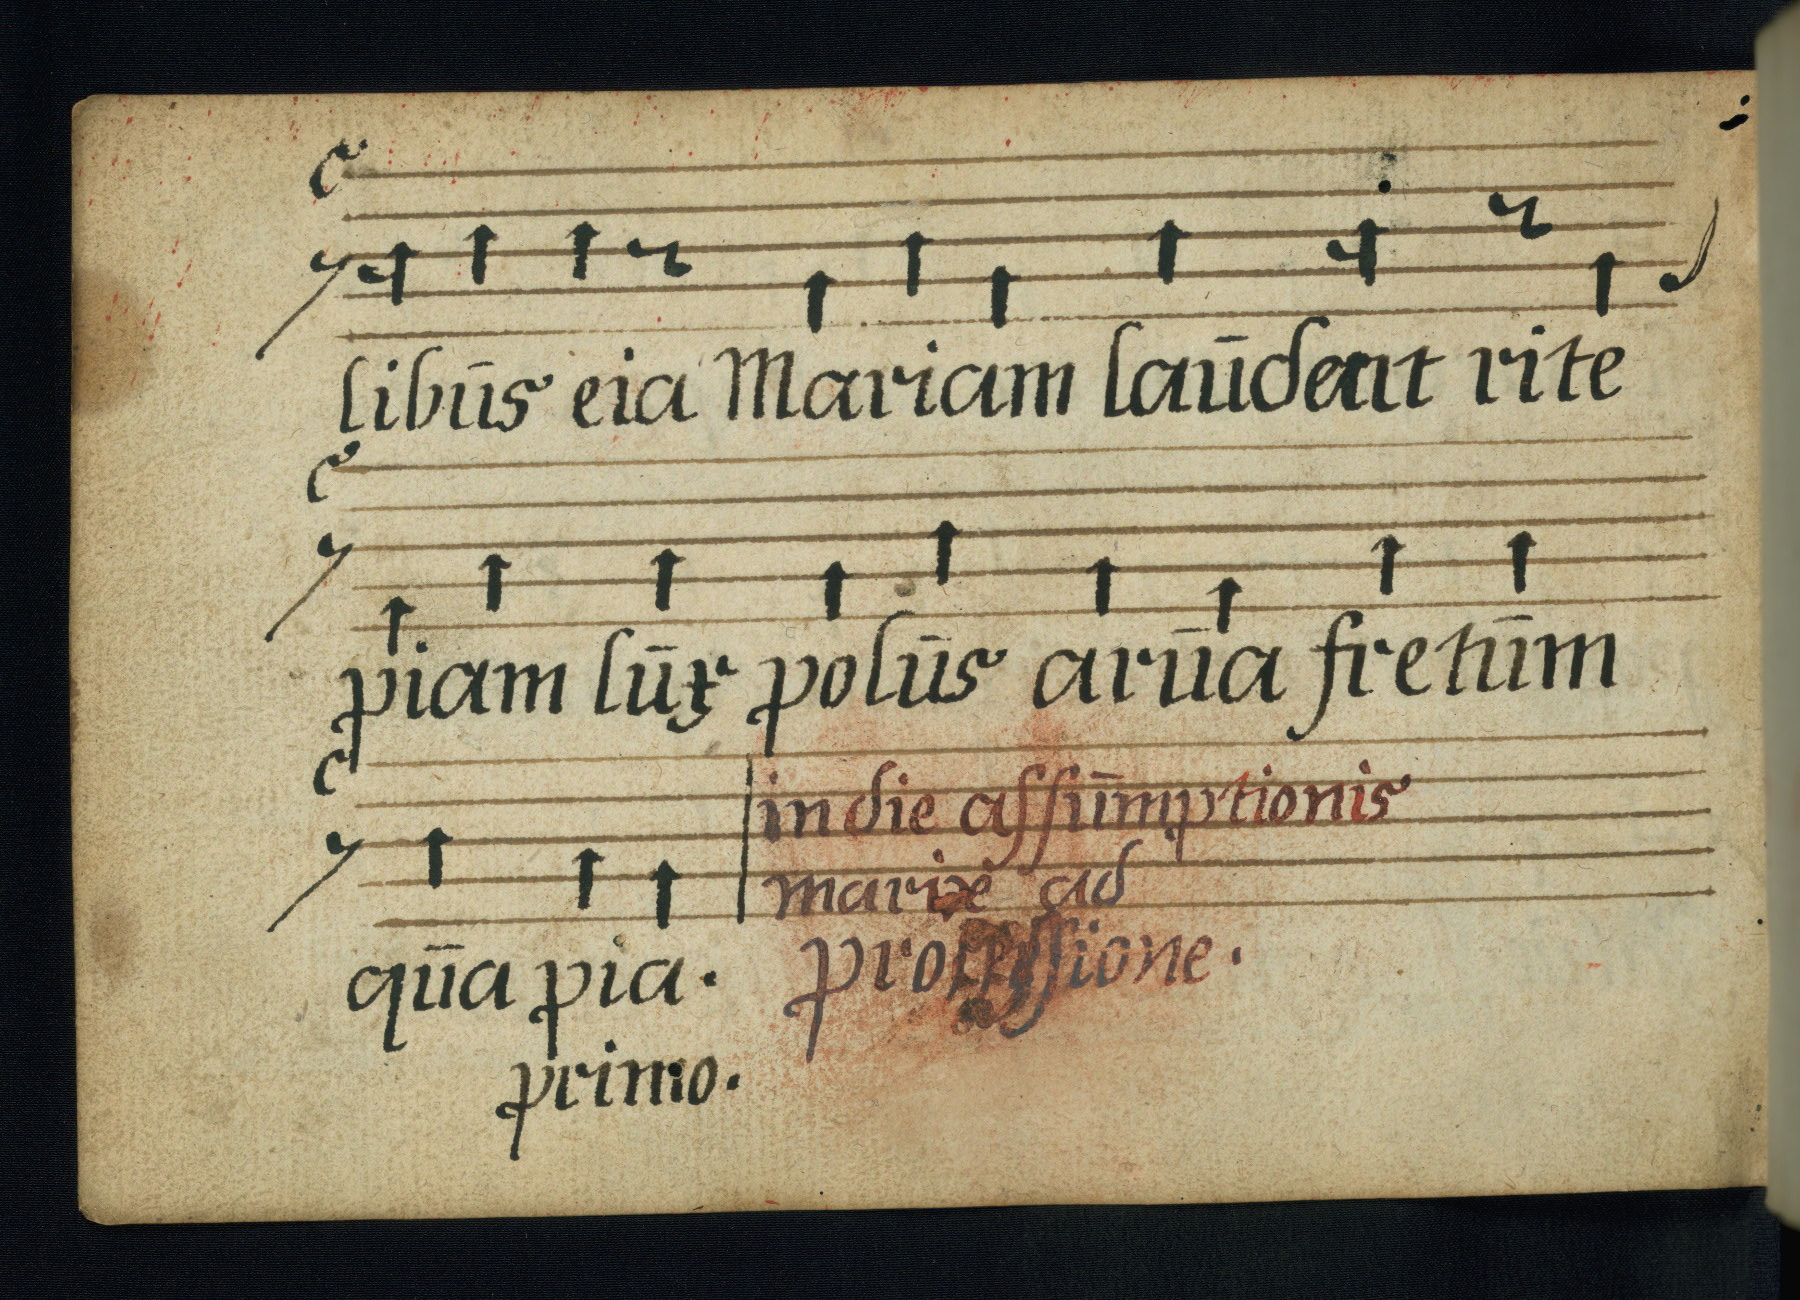 libūs eia Mariam laūdent rite
piam lūx polūs arūa fretūm
qūa pia.
in die assūmptionis
mariæ ad
processione.
primo.